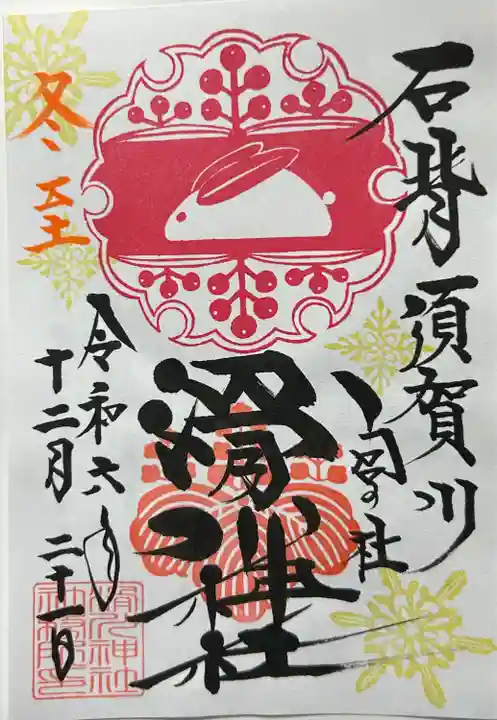 石背 須賀川
の社
滑川神社
冬至
令和六年
十二月 二十一日
滑川神社